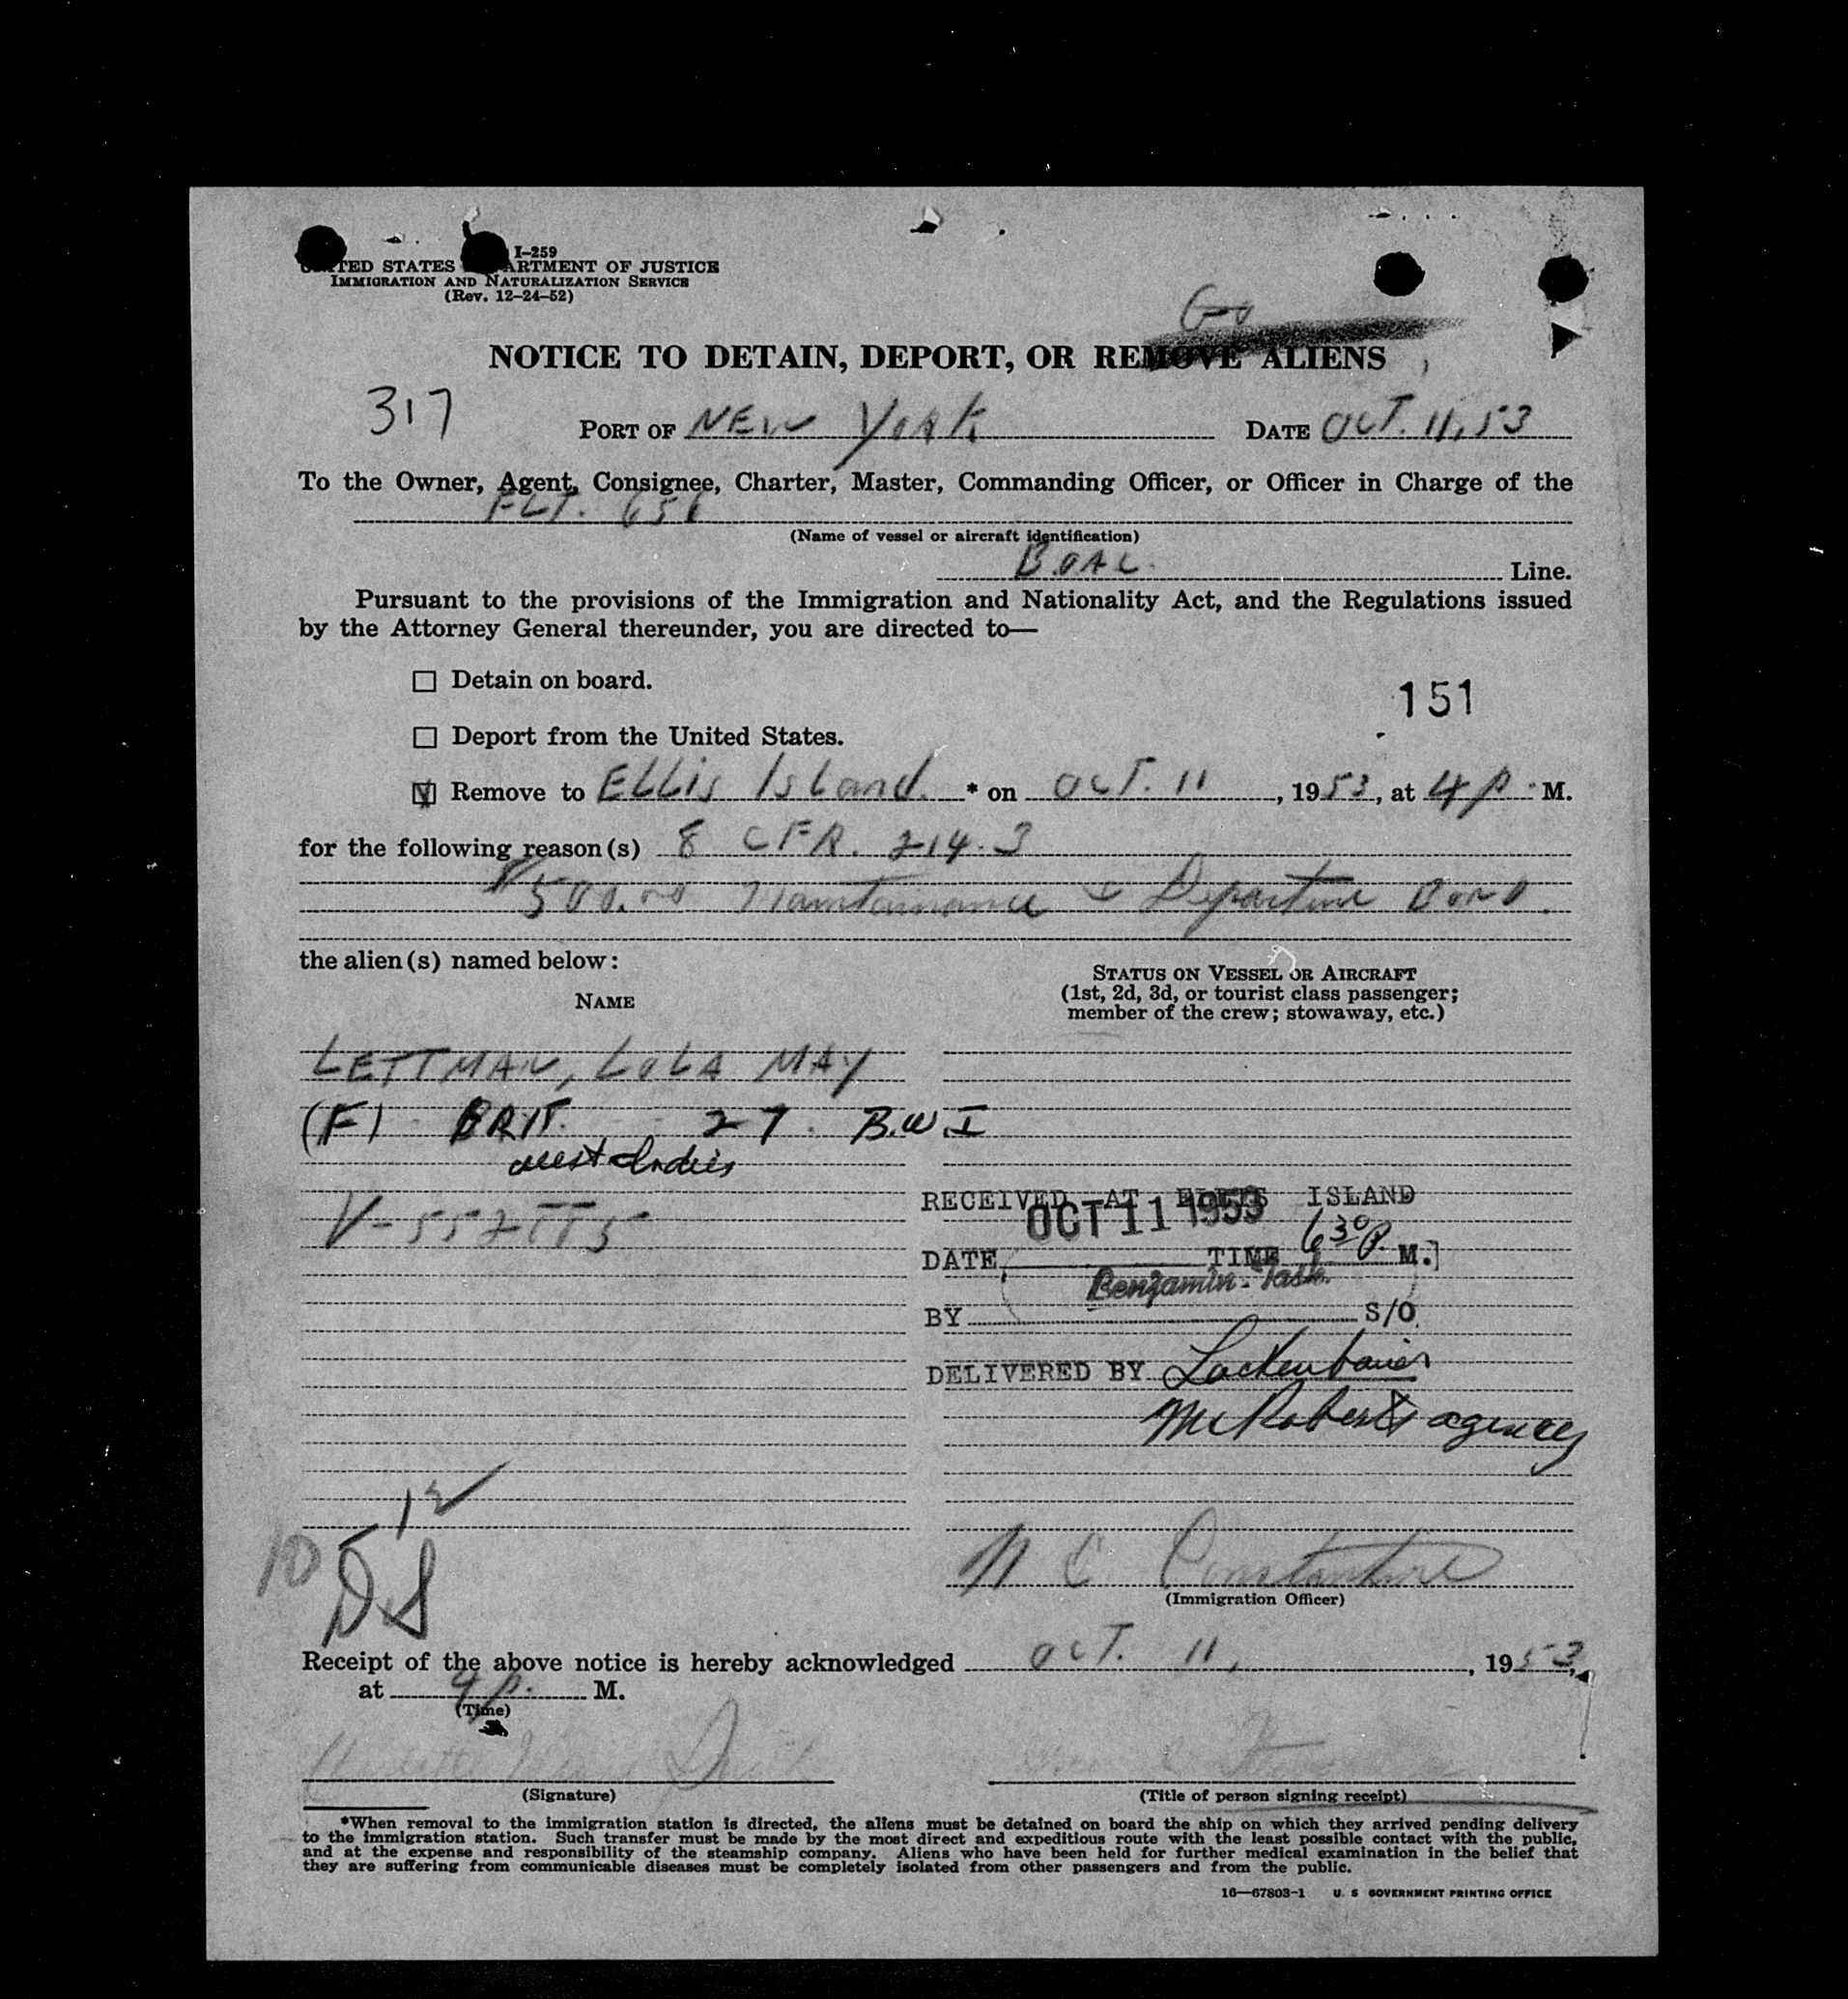 I-259
UNITED STATES DEPARTMENT OF JUSTICE
IMMIGRATION AND NATURALIZATION SERVICE
(Rev. 12-24-52)
Go
NOTICE TO DETAIN, DEPORT, OR REMOVE ALIENS
317
PORT OF NEW YORK DATE OCT. 11, 53
To the Owner, Agent, Consignee, Charter, Master, Commanding Officer, or Officer in Charge of the
FLT. 656
(Name of vessel or aircraft identification)
B.OAC. Line.
Pursuant to the provisions of the Immigration and Nationality Act, and the Regulations issued
by the Attorney General thereunder, you are directed to—
☐ Detain on board.
151
☐ Deport from the United States.
☒ Remove to ELLIS Island. * on OCT. 11, 1953, at 4 p. M.
for the following reason(s) 8 CFR. 214.3
$500.00 Maintainance & Departure BOND.
the alien(s) named below:
STATUS ON VESSEL OR AIRCRAFT
(1st, 2d, 3d, or tourist class passenger;
member of the crew; stowaway, etc.)
NAME
LETTMAN, LOLA MAY
(F) BRIT. 27. B.W.I
West Indies
V-552
RECEIVED AT ELLIS ISLAND
OCT 11 1953
DATE TIME 6 30 P. M.
Benjamin
BY S/O
DELIVERED BY Lackenbauer
McRoberts agency
12 ✓
10
DS
N C. Constantine
(Immigration Officer)
Receipt of the above notice is hereby acknowledged OCT. 11, 1953,
at 4 p. M.
(Time)
(Signature)
(Title of person signing receipt)
*When removal to the immigration station is directed, the aliens must be detained on board the ship on which they arrived pending delivery
to the immigration station. Such transfer must be made by the most direct and expeditious route with the least possible contact with the public,
and at the expense and responsibility of the steamship company. Aliens who have been held for further medical examination in the belief that
they are suffering from communicable diseases must be completely isolated from other passengers and from the public.
16—67803-1 U. S GOVERNMENT PRINTING OFFICE